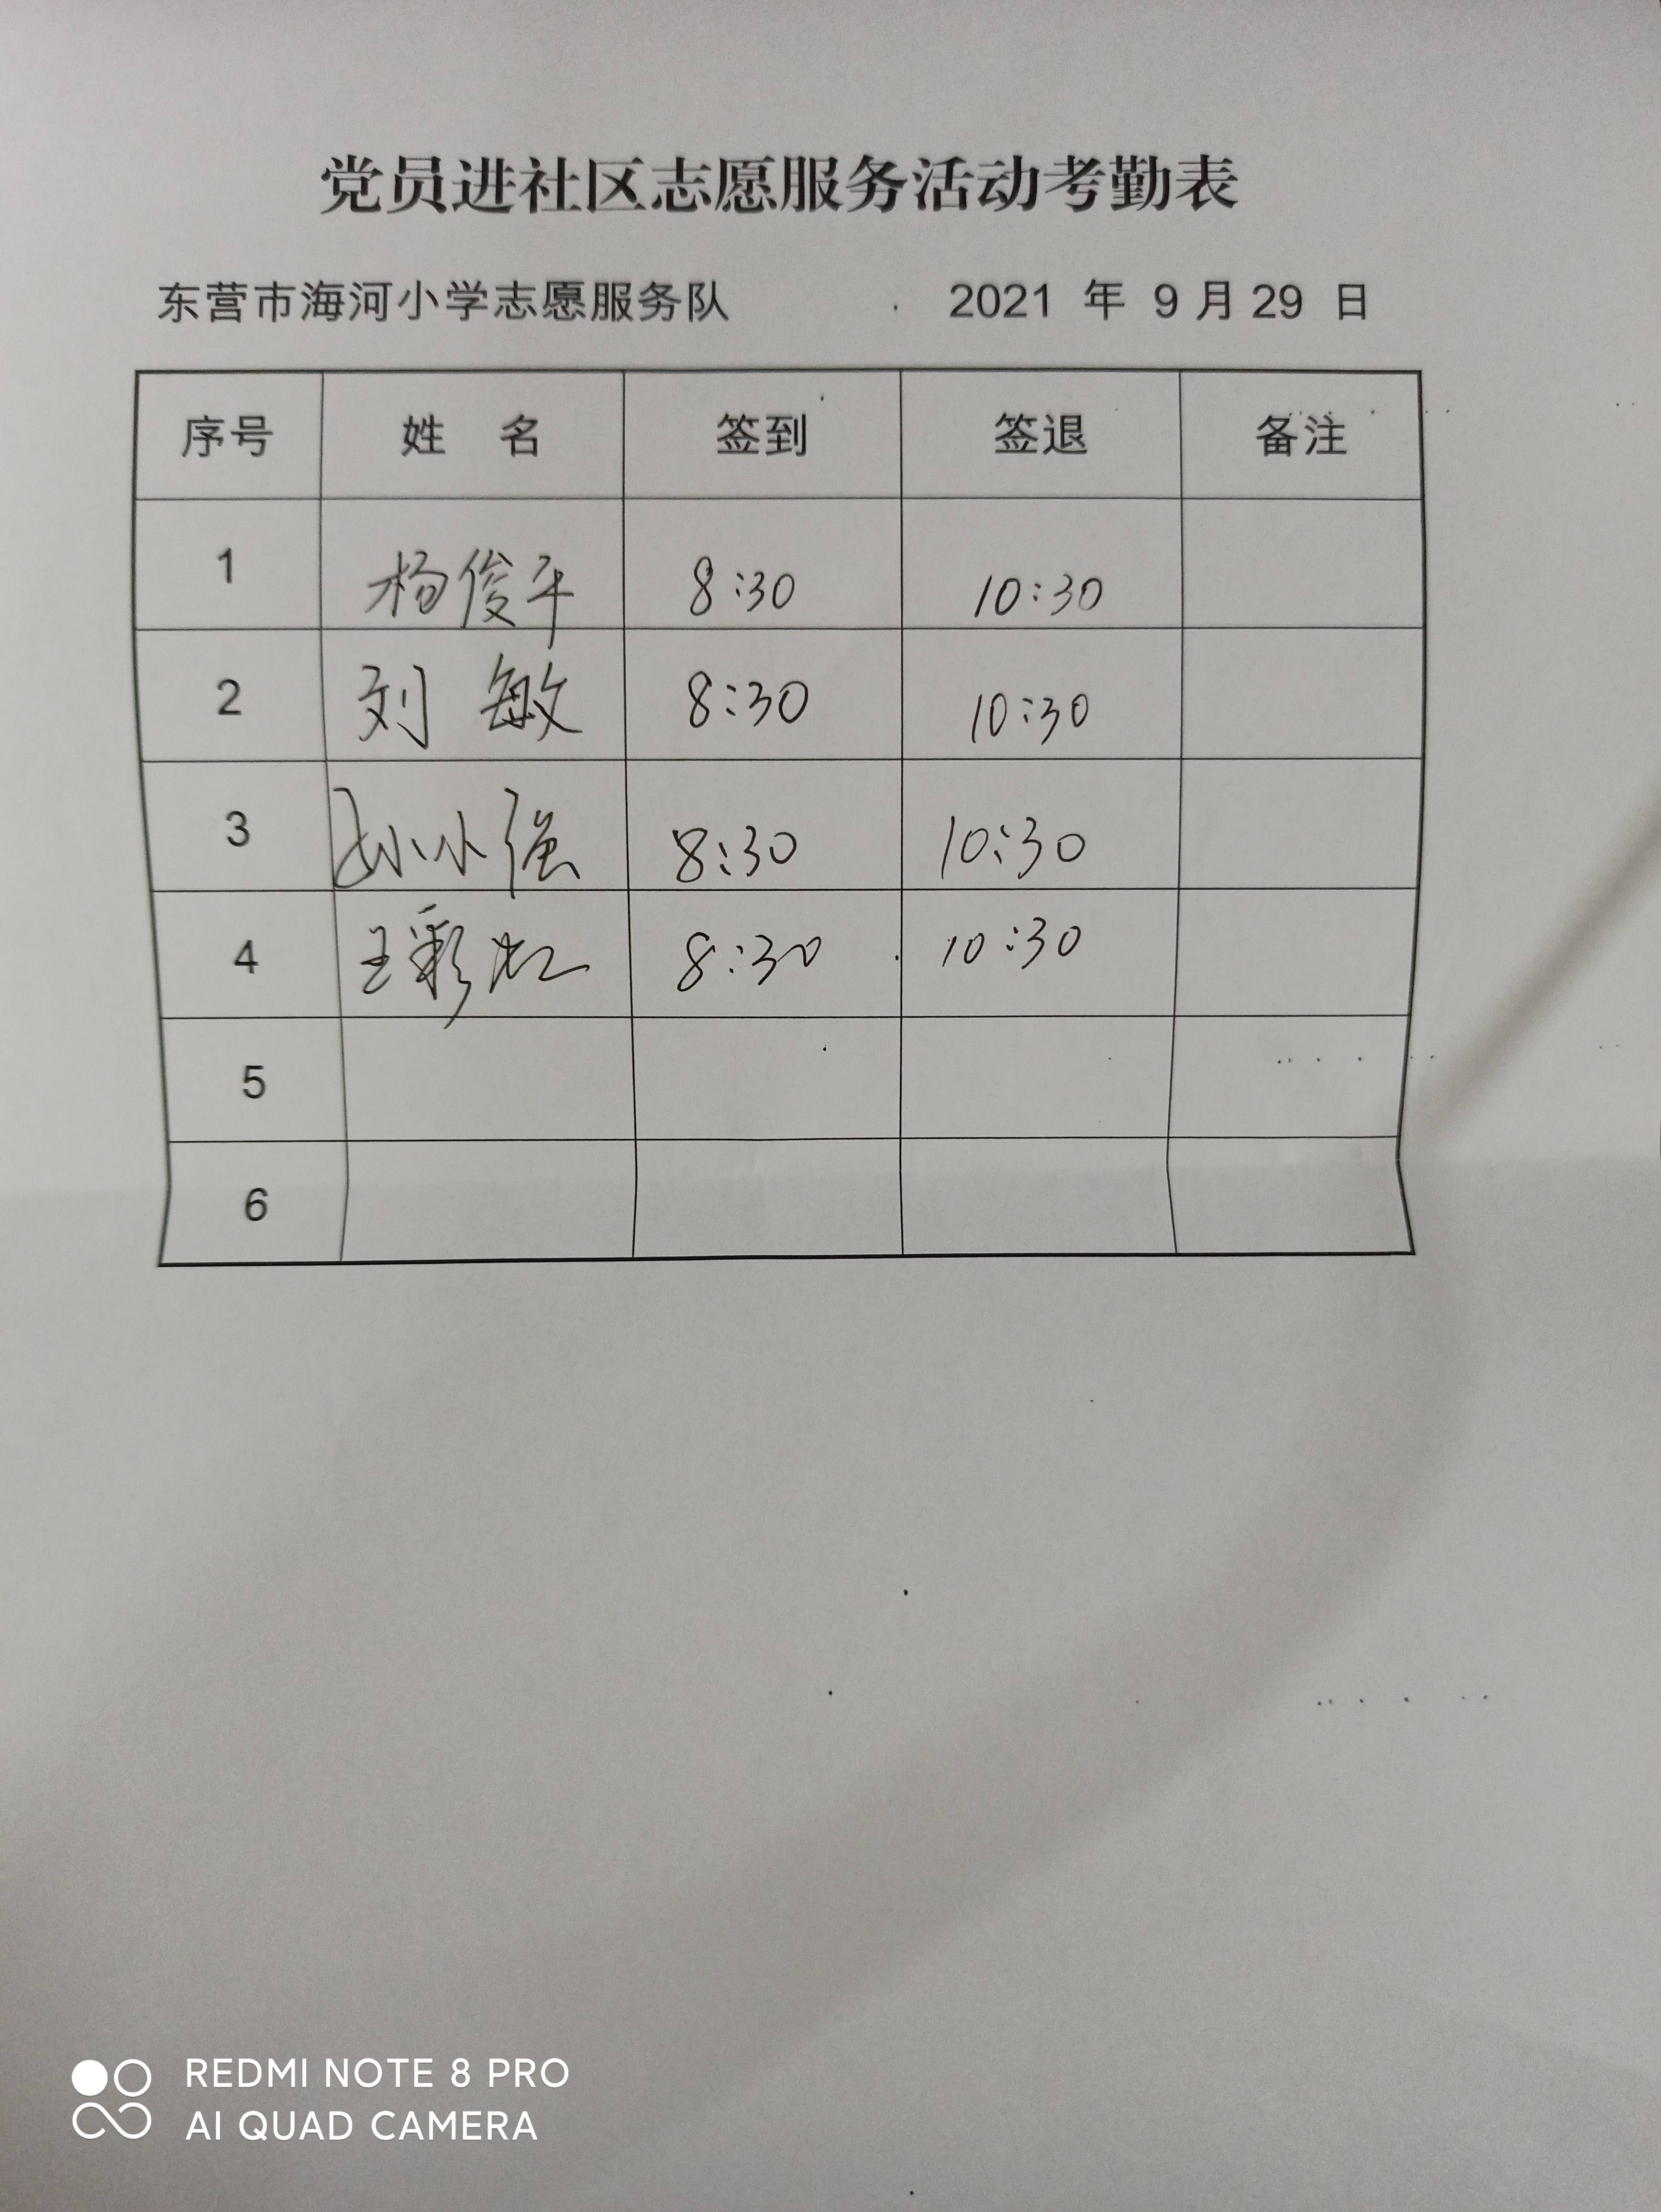 党员进社区志愿服务活动考勤表
东营市海河小学志愿服务队 2021 年 9 月 29 日
序号 姓 名 签到 签退 备注
1 杨俊平 8:30 10:30
2 刘 敏 8:30 10:30
3 孙小强 8:30 10:30
4 王彩虹 8:30 10:30
5
6
REDMI NOTE 8 PRO
AI QUAD CAMERA